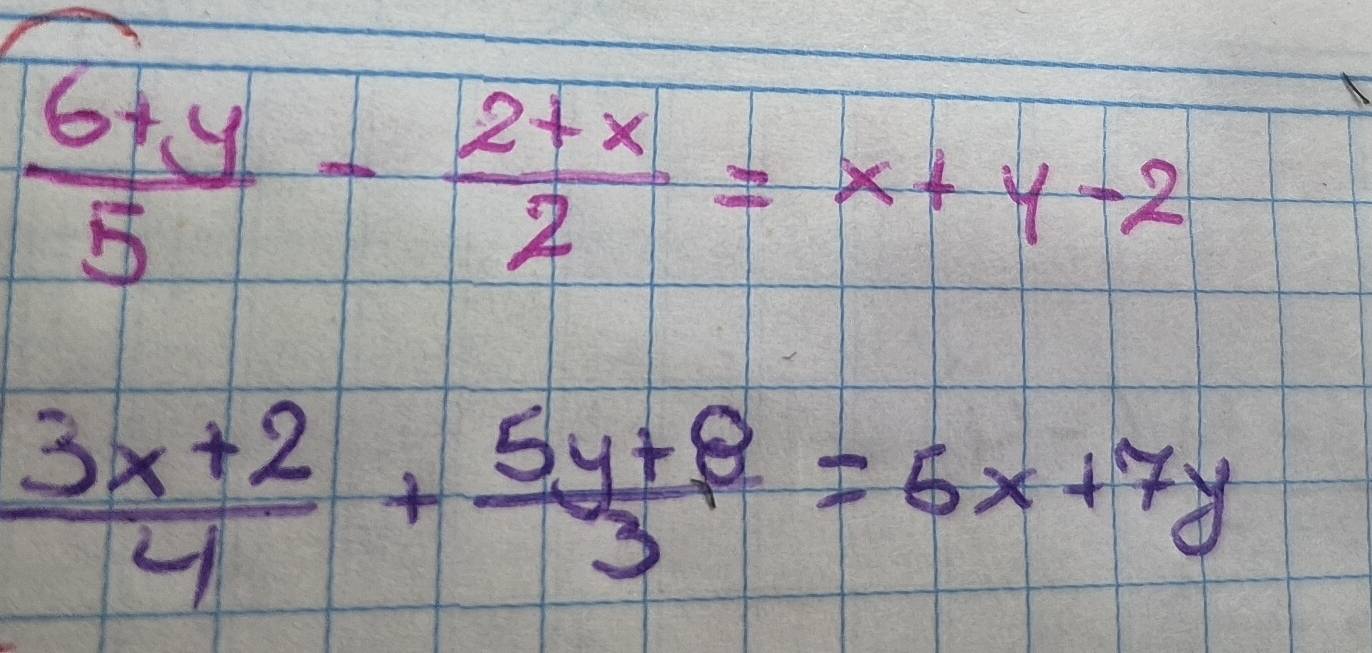 (6+y)/5 - (2+x)/2 = x+y-2
(3x+2)/4 + (5y+8)/3 = 5x+7y